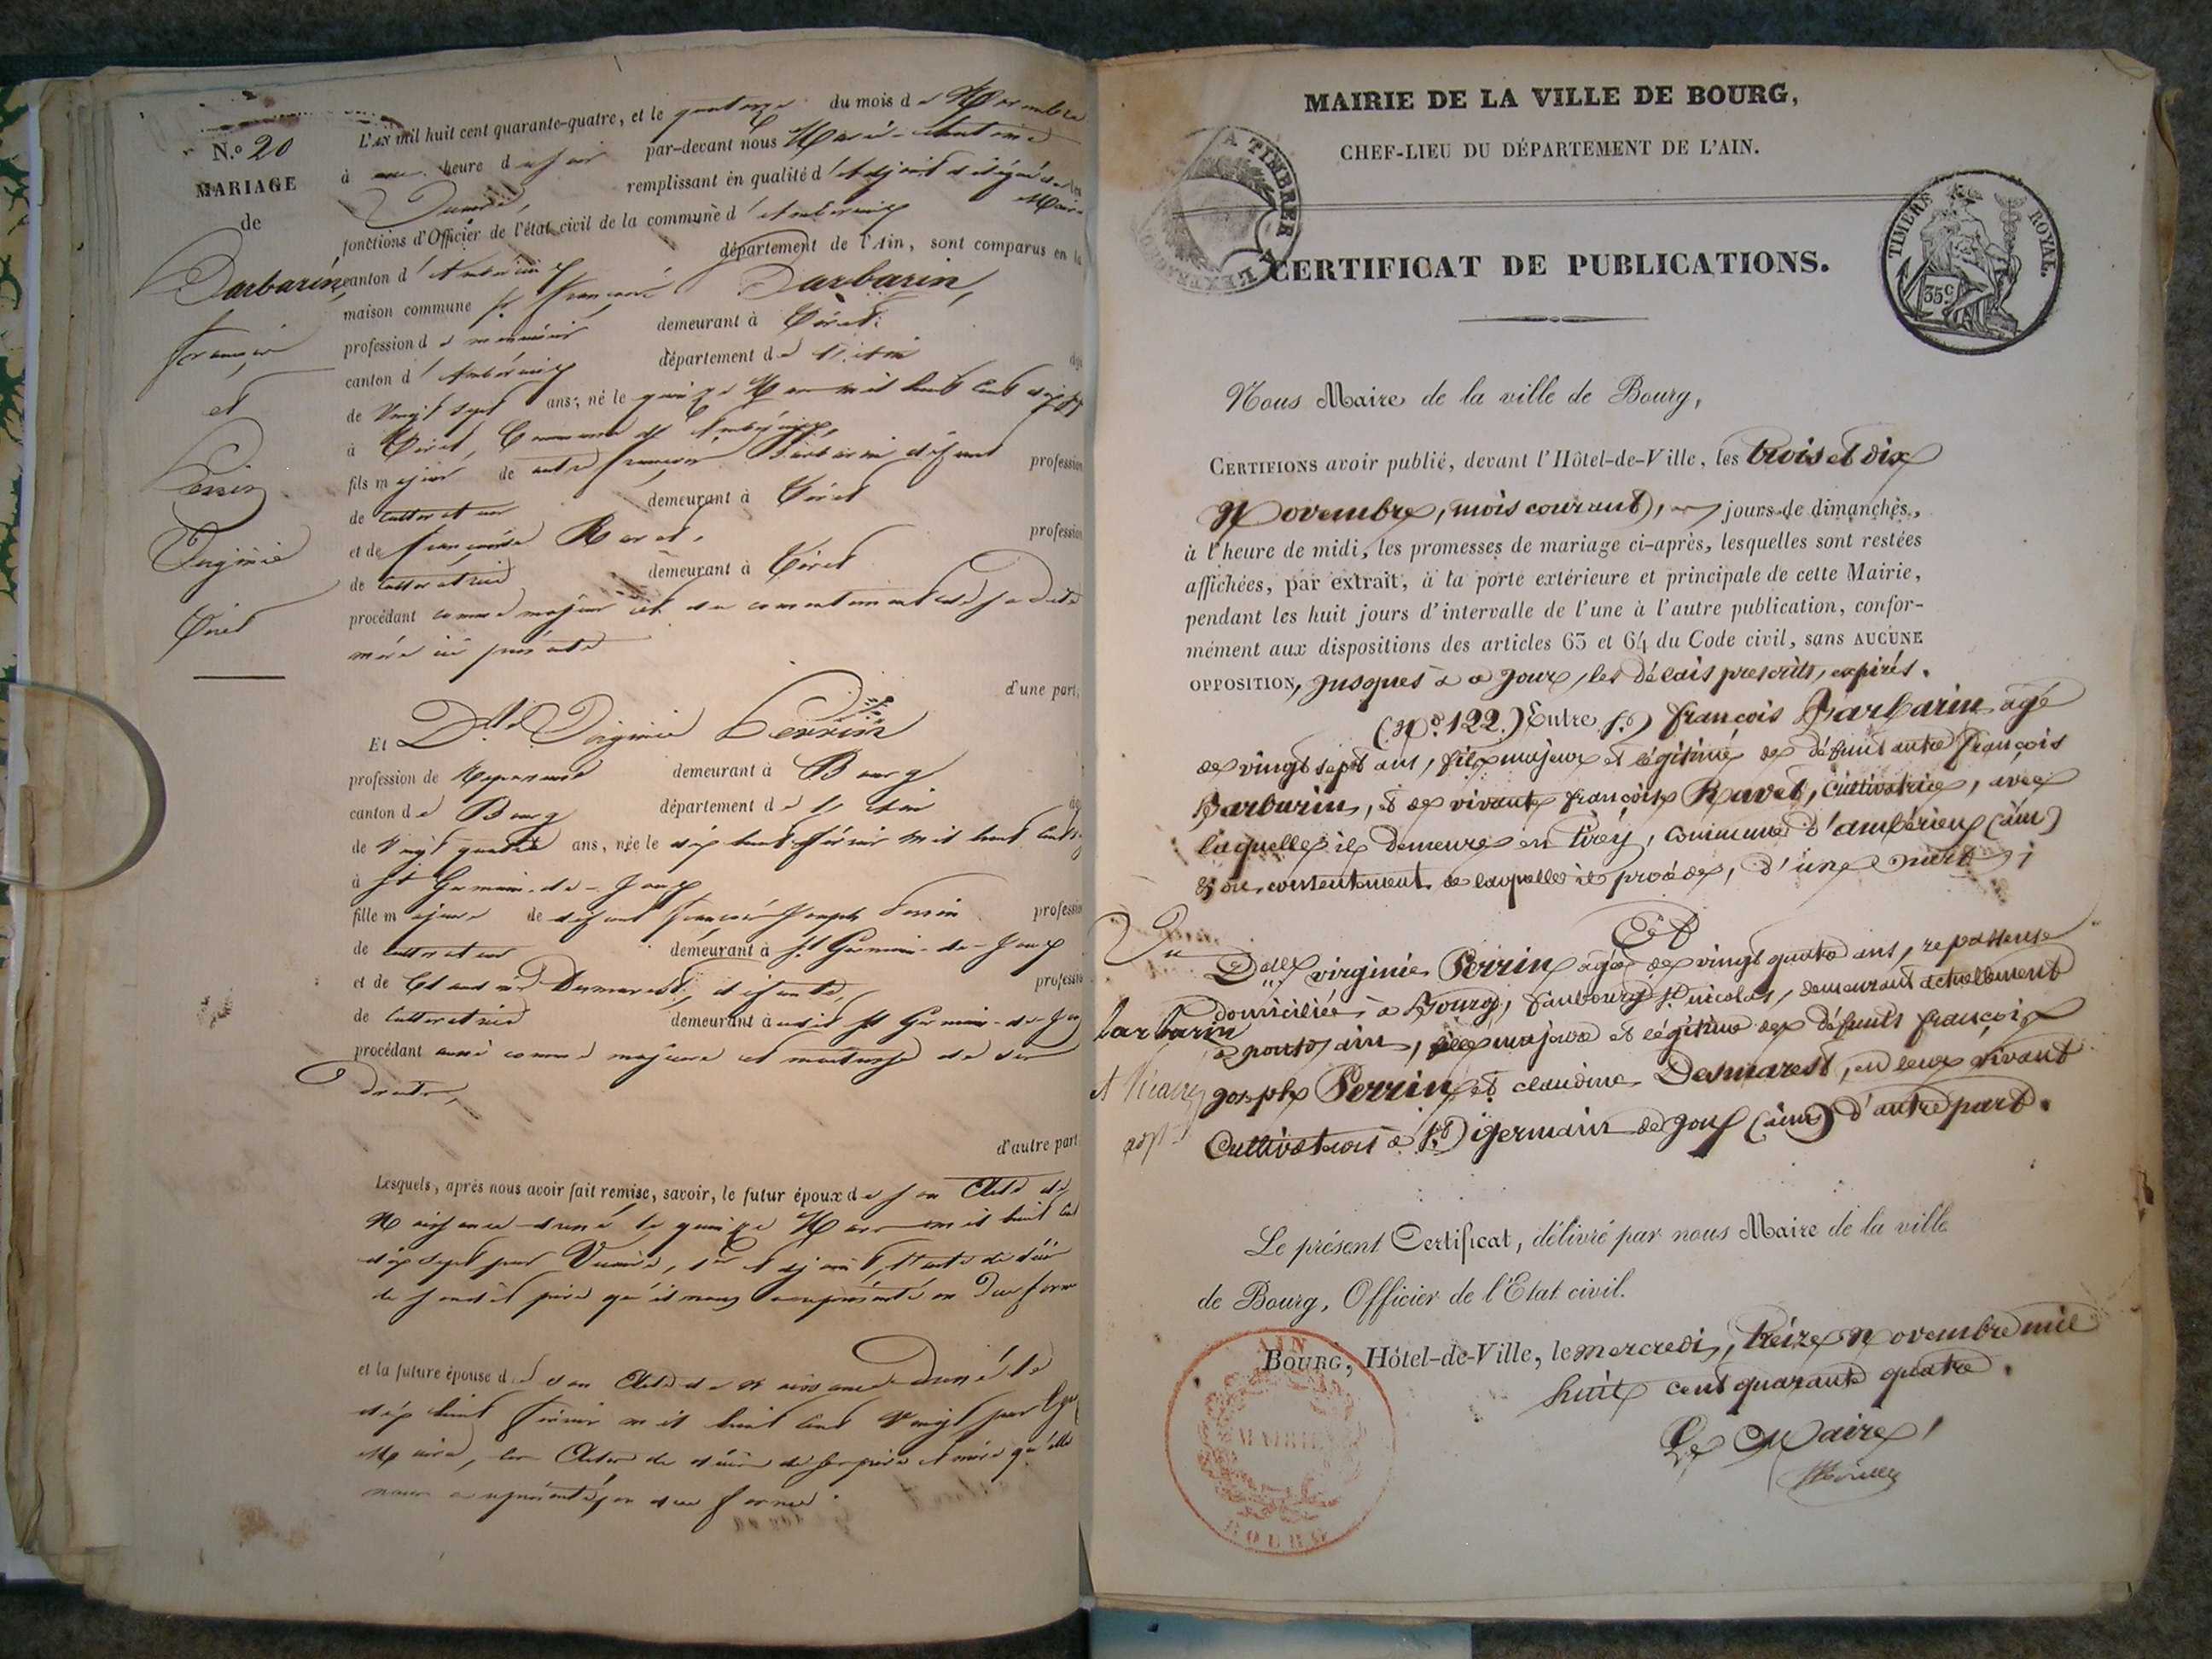 N.º 20
MARIAGE
de
Barbarin,
françois
et
Perrin
Virginie
Tiret
L'AN mil huit cent quarante-quatre, et le quatorze du mois de Novembre
à une heure du soir par-devant nous Marie-Antoine
Dumé, remplissant en qualité d'Adjoint délégué les
Maire
fonctions d'Officier de l'état civil de la commune d'Ambérieux
canton d'Ambérieux département de l'Ain, sont comparus en la
maison commune Sr. François Barbarin,
profession de demeurant à Tiret.
canton d'Ambérieux département de l'Ain
de vingt sept ans, né le quinze Mars mil huit cent dix sept
à Tiret, Commune d'Ambérieux,
fils majeur de autre françois Barbarin défunt profession
de cultivateur demeurant à Tiret
et de françoise Ravet, profession
de cultivatrice demeurant à Tiret
procédant comme majeur et du consentement de sa dite
mère ici présente
d'une part,
Et Dlle Virginie Perrin
profession de Repasseuse demeurant à Bourg
canton de Bourg département de l'Ain
de vingt quatre ans, née le dix huit février mil huit cent
à St Germain-de-Joux
fille majeure de défunt françois Joseph Perrin profession
de cultivateur demeurant à St Germain-de-Joux
et de Claudine Desmarest, défunte, profession
de cultivatrice demeurant à audit St Germain-de-Joux
procédant aussi comme majeure et maîtresse de ses
droits,
d'autre part
Lesquels, après nous avoir fait remise, savoir, le futur époux de son Acte de
Naissance donné le quinze Mars mil huit cent
dix sept par 1er adjoint, l'acte de décès
de père qu'il nous a représenté en due forme
et la future épouse de son Acte de naissance donné le
dix huit février mil huit cent vingt par
Maire, les Actes de décès de ses père et mère qu'elle
nous a représentés en due forme.
MAIRIE DE LA VILLE DE BOURG,
CHEF-LIEU DU DÉPARTEMENT DE L'AIN.
A TIMBRER A L'EXTRAORD
TIMBRE ROYAL
35c
CERTIFICAT DE PUBLICATIONS.
Nous Maire de la ville de Bourg,
CERTIFIONS avoir publié, devant l'Hôtel-de-Ville, les trois et dix
Novembre, (mois courant), jours de dimanches,
à l'heure de midi, les promesses de mariage ci-après, lesquelles sont restées
affichées, par extrait, à la porte extérieure et principale de cette Mairie,
pendant les huit jours d'intervalle de l'une à l'autre publication, confor-
mément aux dispositions des articles 63 et 64 du Code civil, sans AUCUNE
OPPOSITION, jusques à ce jour, les délais prescrits, expirés.
(Nº. 122.) Entre Sr. françois Barbarin agé
de vingt sept ans, fils majeur et légitime de défunt autre françois
Barbarin, et de vivante françoise Ravet, cultivatrice, avec
laquelle il demeure en tirey, commune d'ambérieux (ain)
& du consentement de laquelle il procède, d'une part;
Et
Delle virginie Perrin agée de vingt quatre ans, repasseuse
domiciliée à Bourg, faubourg St nicolas, demeurant actuellement
à pontd'ain, fille majeure et légitime des défunts françois
joseph Perrin et claudine Desmarest, en leur vivant
Cultivateurs à St germain de joux (ain) d'autre part.
Vu
barbarin
Le présent Certificat, délivré par nous Maire de la ville
de Bourg, Officier de l'Etat civil.
BOURG, Hôtel-de-Ville, le mercredi, treize Novembre mil
huit cent quarante quatre.
Le Maire,
AIN
MAIRIE
BOURG